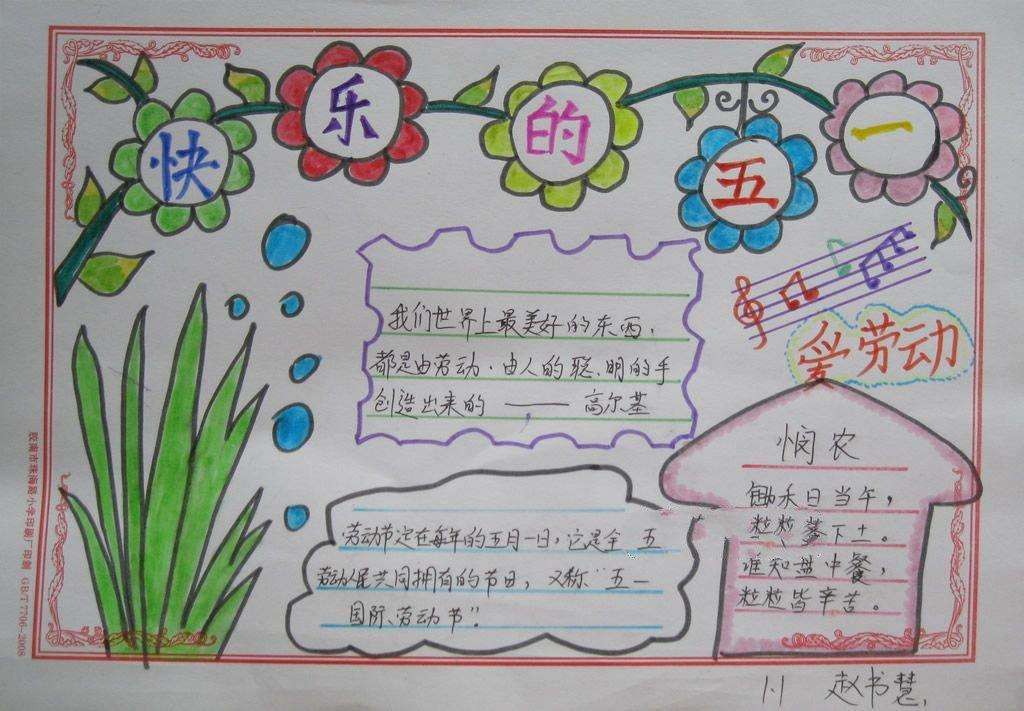 快乐的五一
我们世界上最美好的东西，
都是由劳动．由人的聪．明的手
创造出来的 —— 高尔基
爱劳动
悯农
锄禾日当午，
粒粒下土。
谁知盘中餐，
粒粒皆辛苦。
劳动节定在每年的五月一日，它是全五
劳动人民共同拥有的节日，又称“五一
国际．劳动节”．
1.1 赵书慧．
胶南市珠海路小学印刷厂印制 GB/T 7706-2008